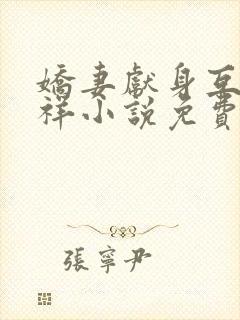 嬌妻獻身互
祥小說免費
張寧尹